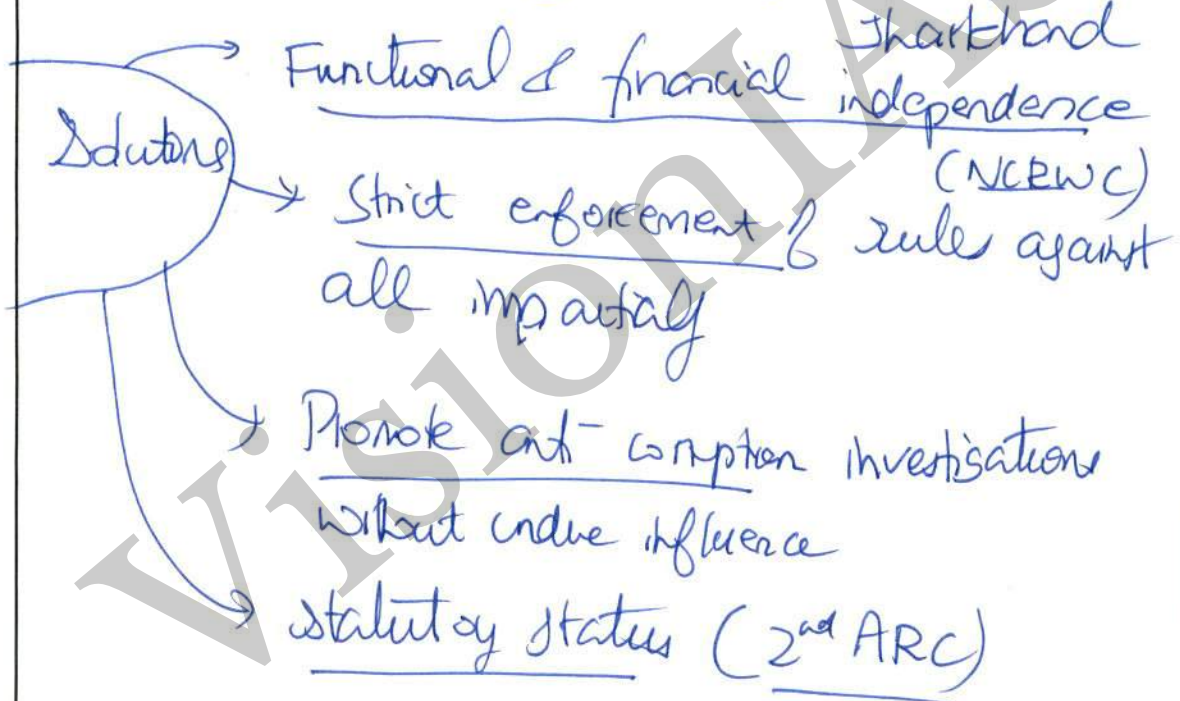 Jharkhand
Solutions
Functional & financial independence
(NCRWC)
Strict enforcement of rules against
all impartialy
Promote anti-corruption investigations
without undue influence
statutoy status (2nd ARC)
VisionIAS